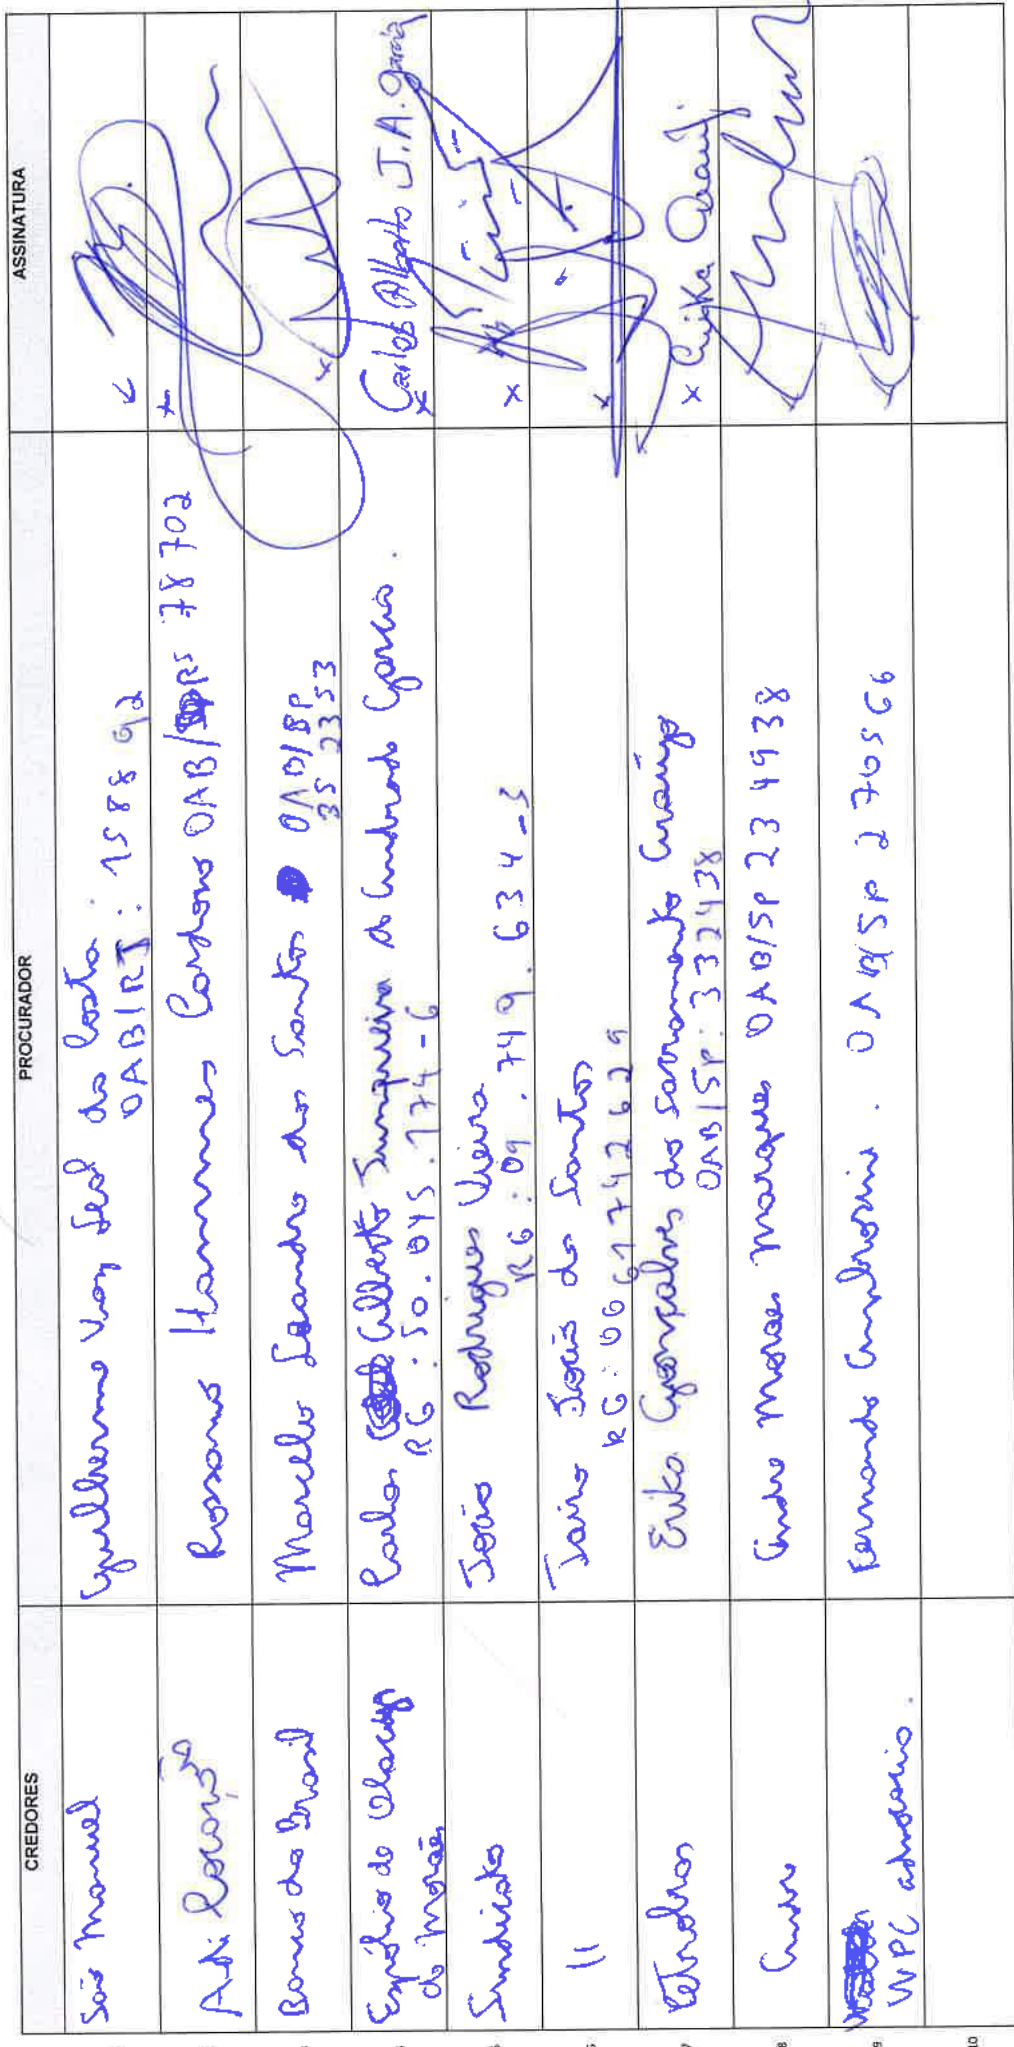 CREDORES
PROCURADOR
ASSINATURA
São Manuel
Guilherme Vaz Leal da Costa
OAB/RJ: 158892
Adi
Rossana Hammes Cardoso OAB/RS 78702
Banco do Brasil
Marcelo Leandro dos Santos OAB/SP
352353
Espólio de Olacyr
de Moraes
Carlos Alberto Junqueira de Andrade Garcia.
RG: 50.045.174-6
Carlos Alberto J.A. Garcia
Sindicato
João Rodrigues Vieira
RG: 09.749.634-5
11
Jairo José dos Santos
RG: 06 61742629
Petrobras
Erika Gonçalves do Sacramento Araújo
OAB/SP: 332438
Erika Araujo
8
Andre
Andre Moraes Marques OAB/SP 234938
9
WPC advocacia.
Fernando Ambrosini. OAB/SP 270566
10